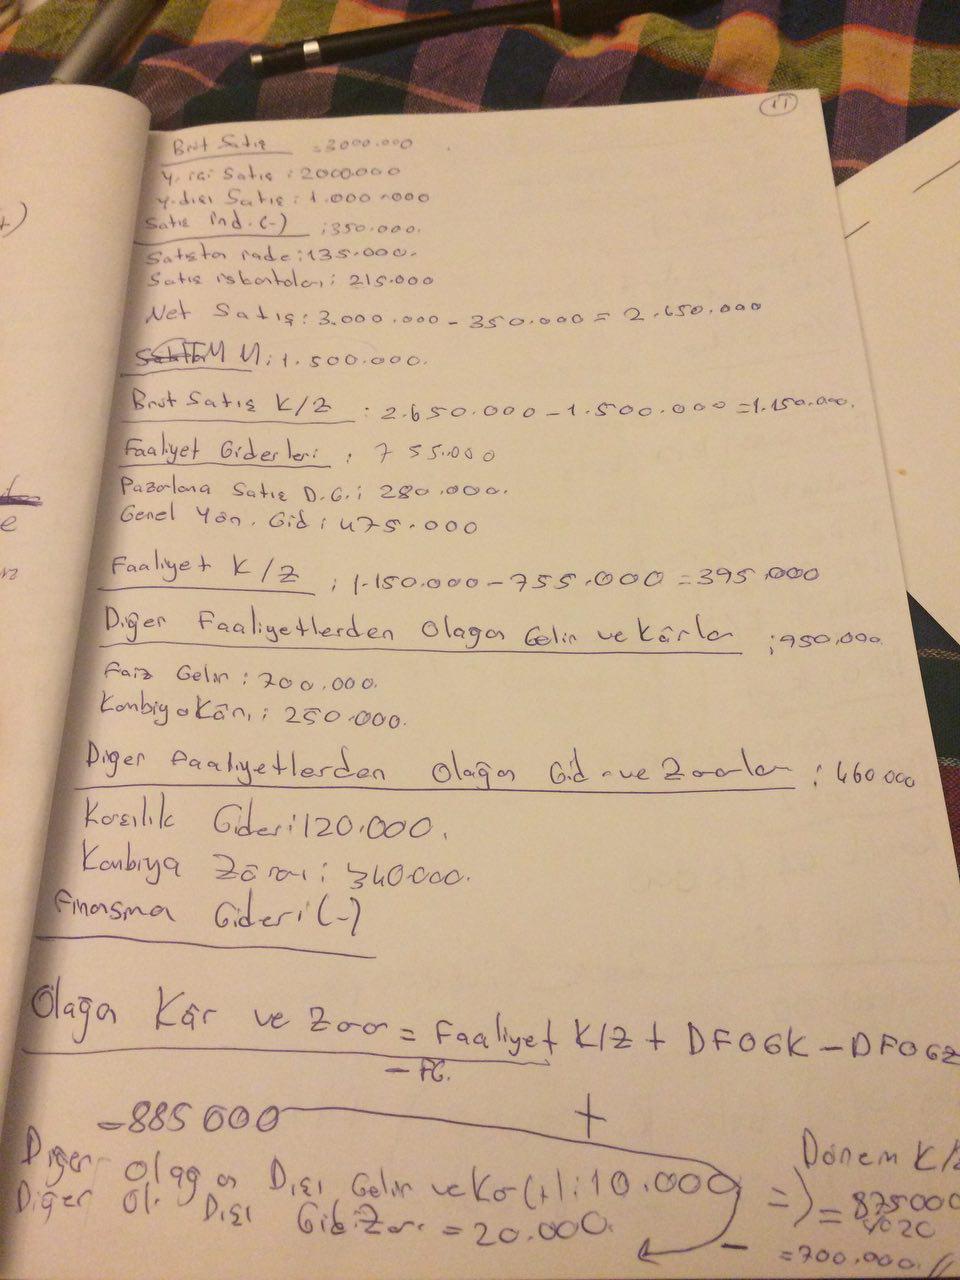 17
Brüt Satış =3000.000
Y. içi Satış : 2000.000
y.dışı Satış : 1.000.000
Satış İnd. (-) : 350.000.
Satıştan iade : 135.000.
Satış iskontoları : 215.000
Net Satış : 3.000.000 - 350.000 = 2.650.000
M M : 1.500.000.
Brüt Satış K/Z : 2.650.000 - 1.500.000 = 1.150.000.
Faaliyet Giderleri : 755.000
Pazarlama Satış D.G. : 280.000.
Genel Yön. Gid : 475.000
Faaliyet K/Z : 1.150.000 - 755.000 = 395.000
Diğer Faaliyetlerden Olağan Gelir ve Kârlar : 950.000
Faiz Gelir : 700.000.
Kambiyo Kârı : 250.000.
Diğer Faaliyetlerden Olağan Gid. ve Zararlar : 460.000
Karşılık Gideri : 120.000.
Kambiya Zararı : 340.000.
Finasma Gideri (-)
Olağan Kâr ve Zarar = Faaliyet K/Z + DFOGK - DFOGZ
- FG.
=885 000 +
Dönem K/Z
Diğer Olağan Dışı Gelir ve Kar (+) : 10.000 => = 875000
Diğer Ol. Dışı Gid. Zarar = 20.000. - %20
=700.000.//